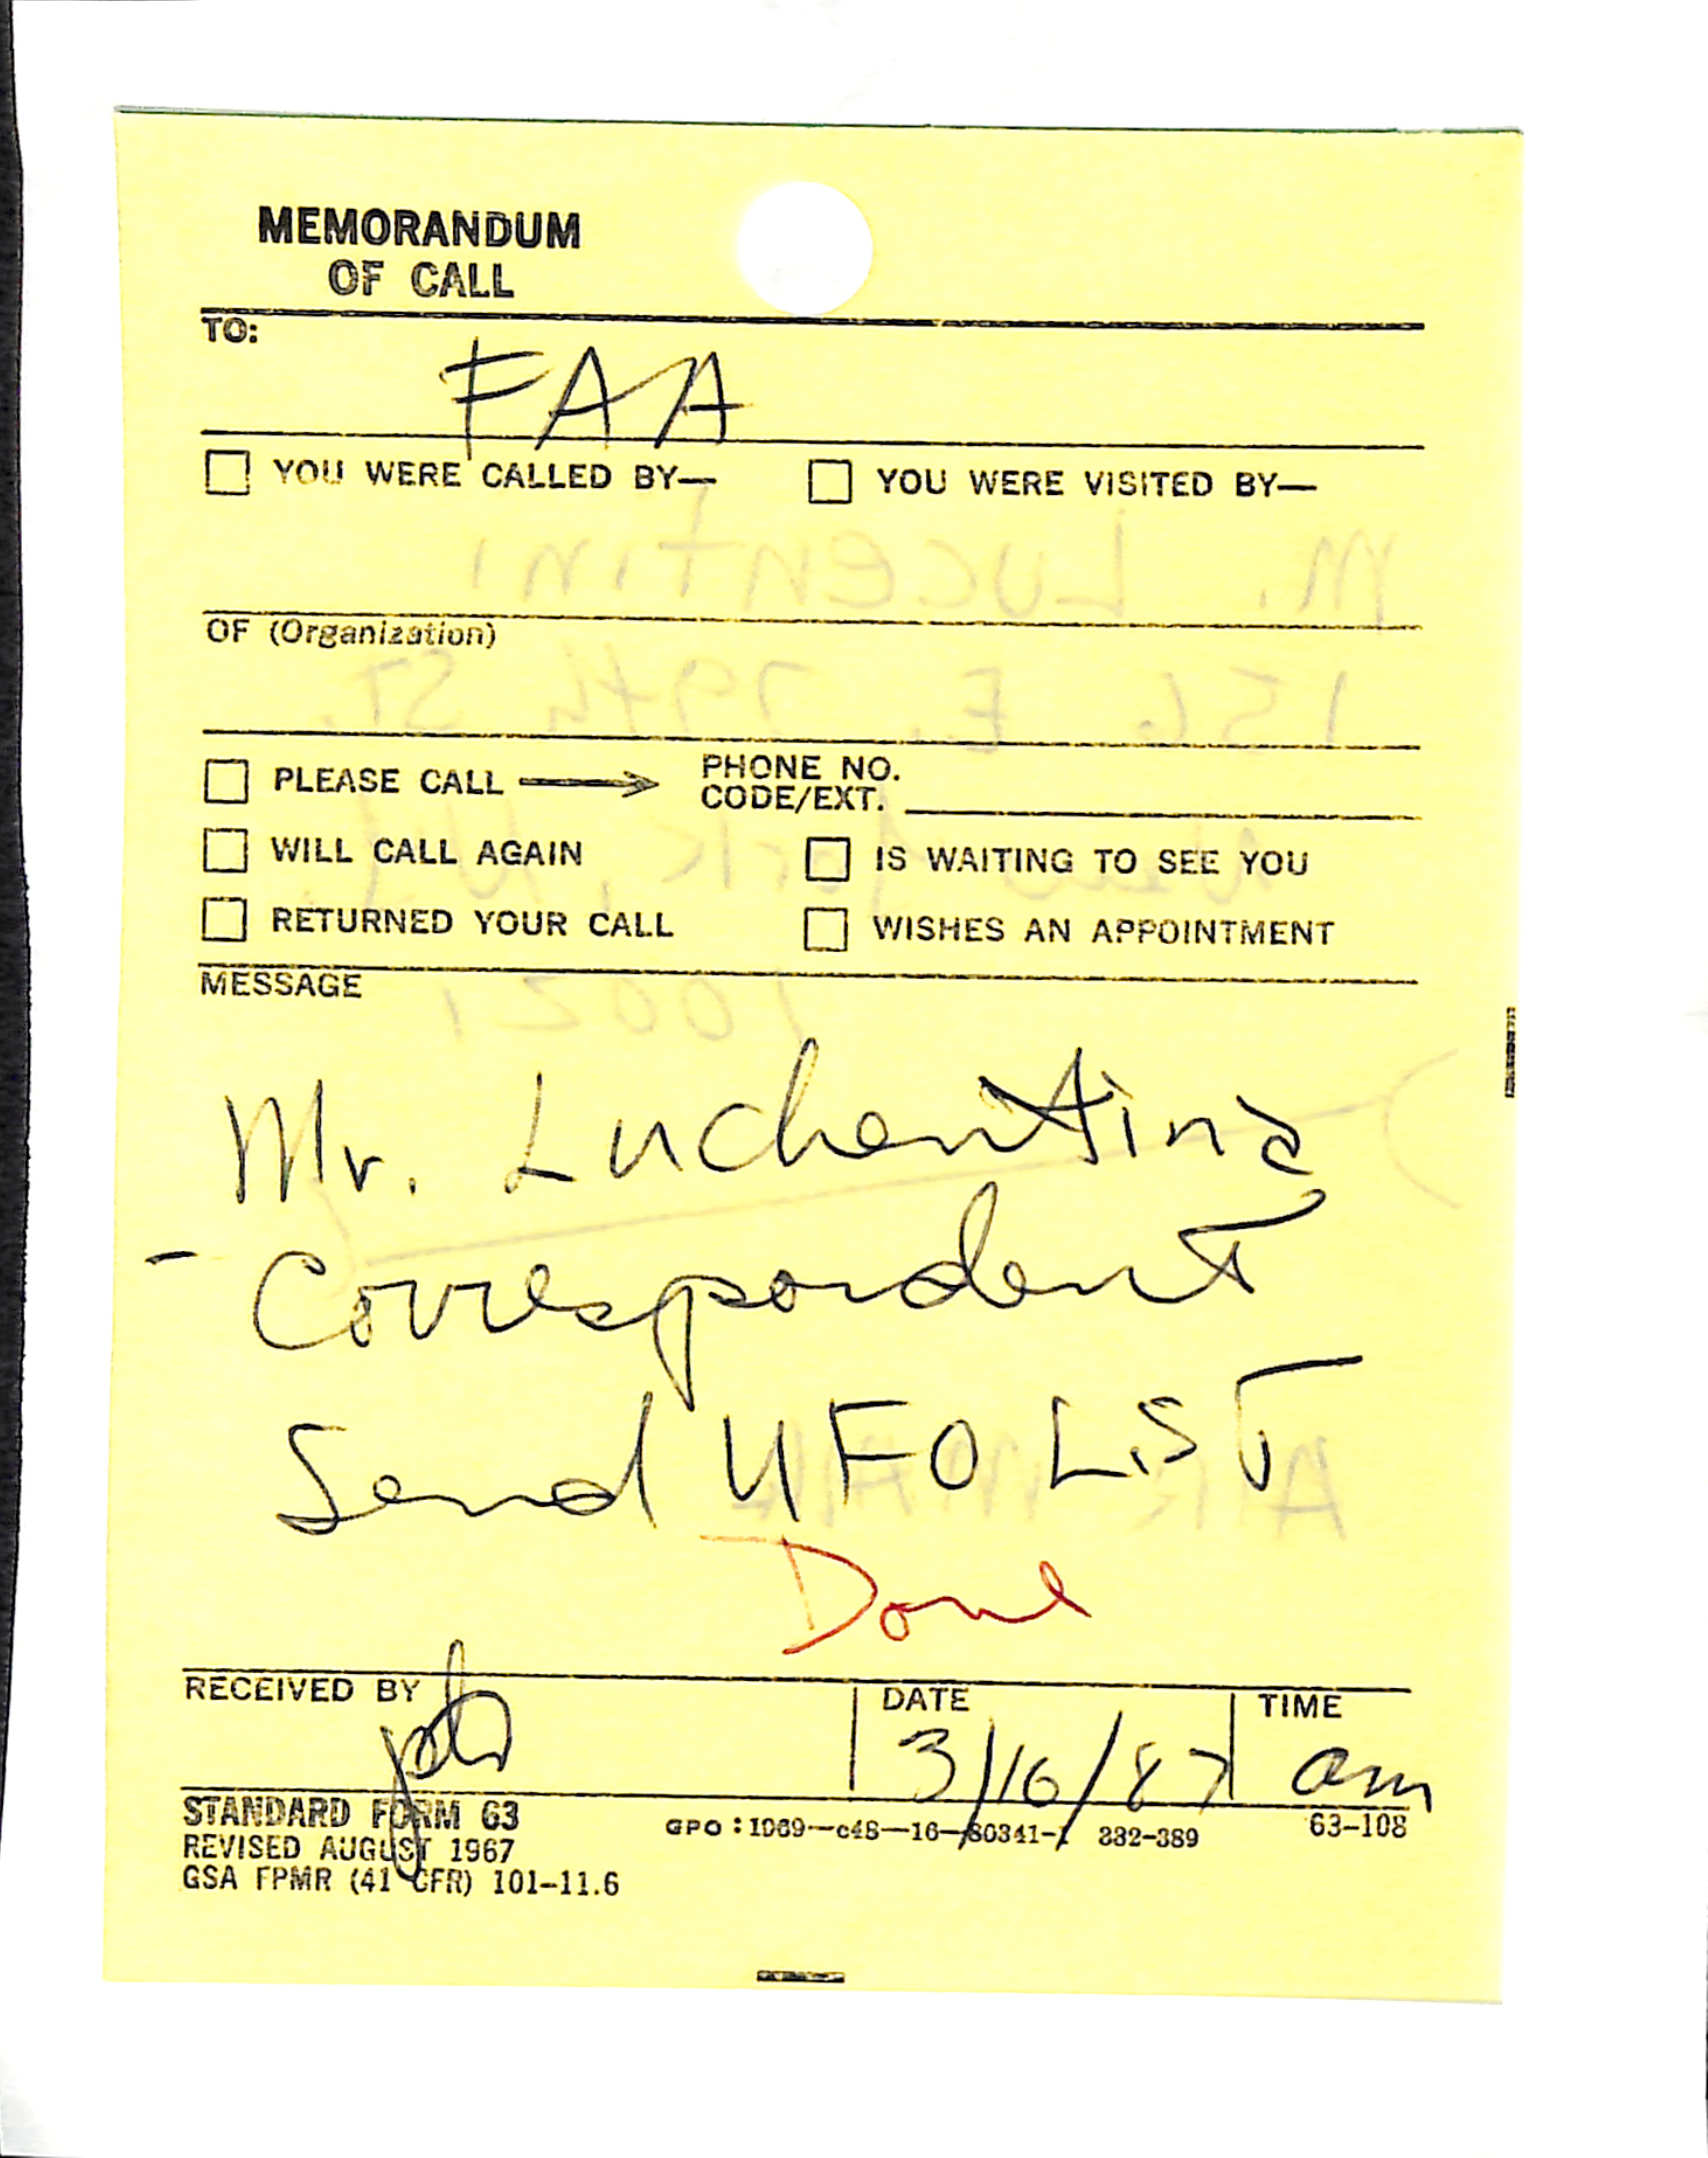 MEMORANDUM
OF CALL
TO:
FAA
☐ YOU WERE CALLED BY— ☐ YOU WERE VISITED BY—
M. Lucentini
OF (Organization)
156 E. 79th ST.
☐ PLEASE CALL → PHONE NO.
CODE/EXT.
☐ WILL CALL AGAIN ☐ IS WAITING TO SEE YOU
New York, NY
☐ RETURNED YOUR CALL ☐ WISHES AN APPOINTMENT
MESSAGE
10021
Mr. Luchentini
- Correspondent
Send UFO LIST
AIR MAIL
Done
RECEIVED BY DATE TIME
3/16/87 am
STANDARD FORM 63 GPO : 1969—c48—16—80341-1 332-389 63-108
REVISED AUGUST 1967
GSA FPMR (41 CFR) 101-11.6